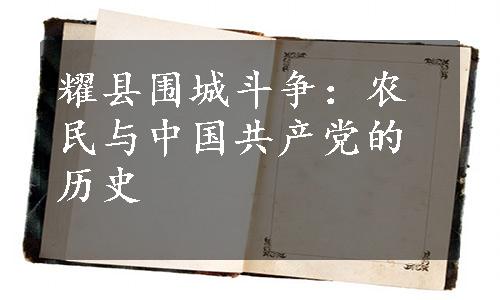 耀县围城斗争：农
民与中国共产党的
历史